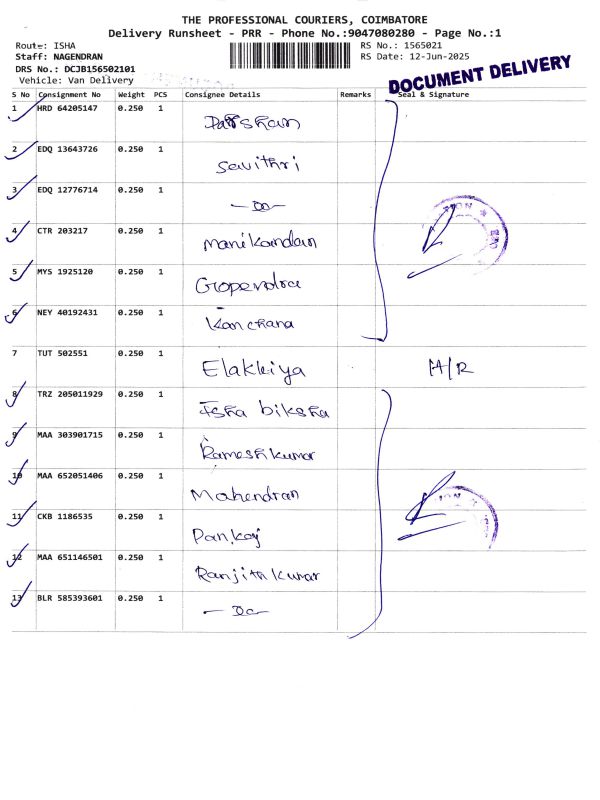 THE PROFESSIONAL COURIERS, COIMBATORE
Delivery Runsheet - PRR - Phone No.:9047080280 - Page No.:1
Route: ISHA
RS No.: 1565021
Staff: NAGENDRAN
RS Date: 12-Jun-2025
DRS No.: DCJB156502101
Vehicle: Van Delivery
DOCUMENT DELIVERY
S No Consignment No Weight PCS Consignee Details Remarks Seal & Signature
1 HRD 64205147 0.250 1 Darshan
2 EDQ 13643726 0.250 1 Savithri
3 EDQ 12776714 0.250 1 - Do -
4 CTR 203217 0.250 1 Manikandan
5 MYS 1925120 0.250 1 Gopendra
6 NEY 40192431 0.250 1 Kanchana
7 TUT 502551 0.250 1 Elakkiya
8 TRZ 205011929 0.250 1 Isha biksha
9 MAA 303901715 0.250 1 Rameshkumar
10 MAA 652051406 0.250 1 Mahendran
11 CKB 1186535 0.250 1 Pankaj
12 MAA 651146501 0.250 1 Ranjith Kumar
13 BLR 585393601 0.250 1 - Do -